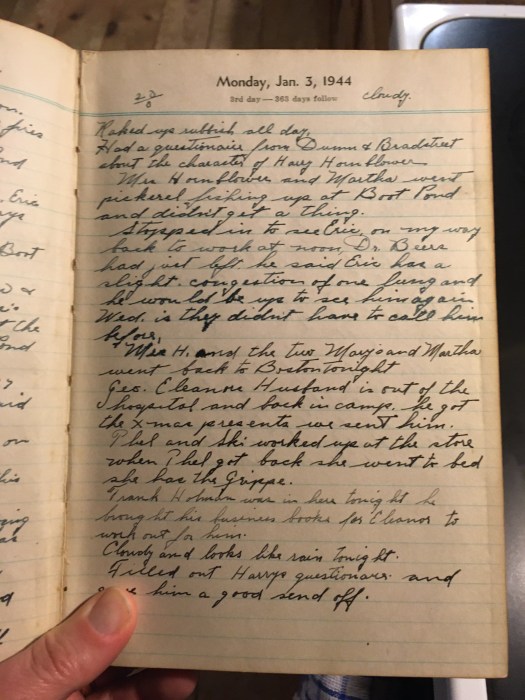 Monday, Jan. 3, 1944
3rd day — 363 days follow
cloudy.
Raked up rubbish all day,
Had a questionaire from Dunn & Bradstreet
about the character of Harry Hornblower
Mrs Hornblower and Martha went
pickerel fishing up at Boot Pond
and didn't get a thing.
Stopped in to see Eric on my way
back to work at noon, Dr. Beers
had just left he said Eric has a
slight congestion of one lung and
he would be up to see him again
Wed. is they didn't have to call him
before,
Mrs H. and the two Marys and Martha
went back to Boston tonight
Geo. Eleanore Husband is out of the
hospital and back in camp, he got
the X-mas presents we sent him.
Phel and Ski worked up at the store
when Phel got back she went to bed
she has the Grippe.
Frank Holman was in here tonight he
brought his business books for Eleanor to
work out for him.
Cloudy and looks like rain tonight.
Filled out Harrys questionare and
him a good send off.
ires
nd
Eric
Boot
&
the
ond
on
his